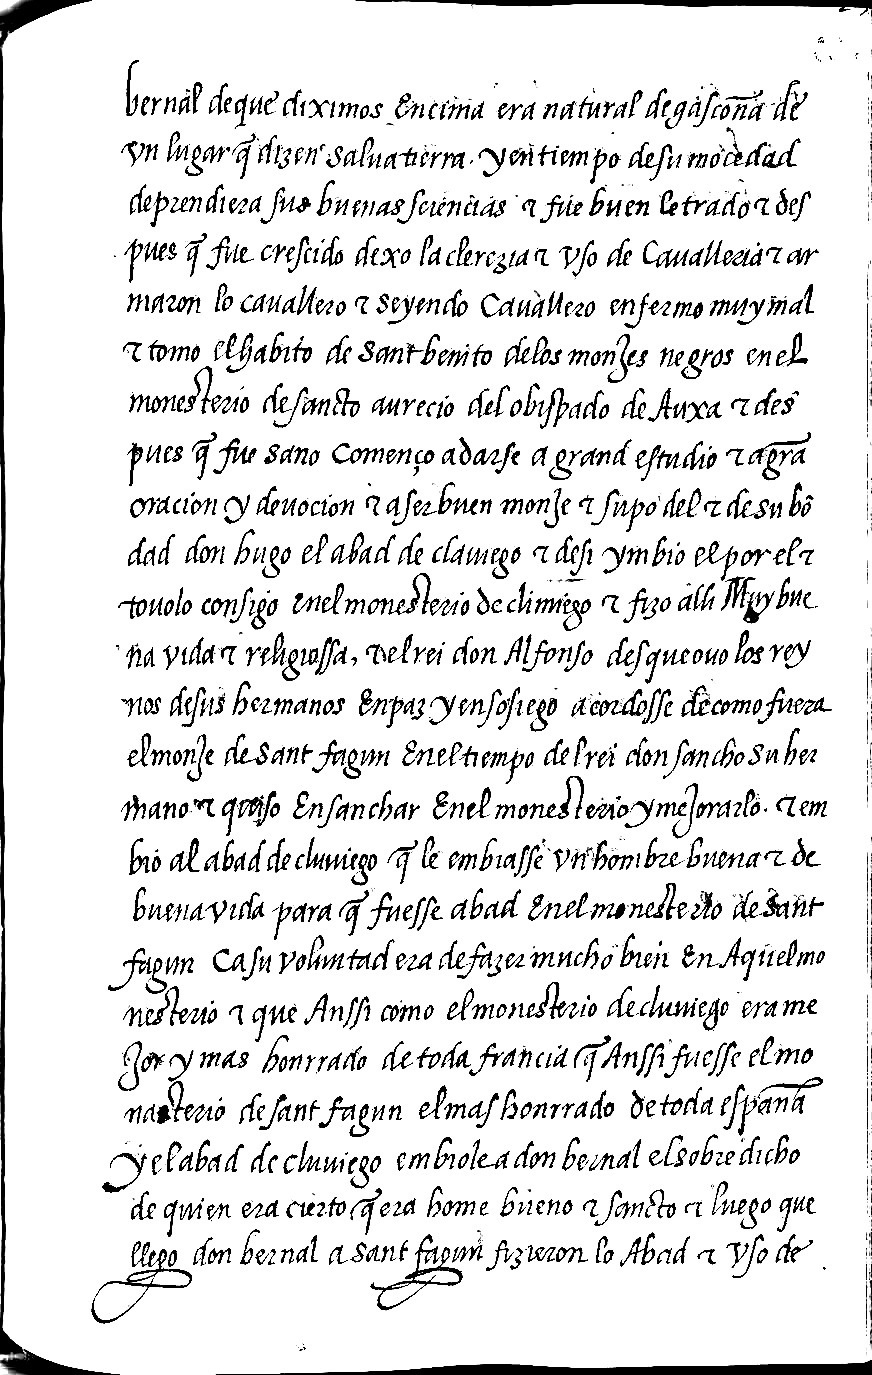 bernal deque diximos Encima era natural de gascoña de
vn lugar q̃ dizen saluatierra. y en tiempo de su mocedad
deprendiera sus buenas sciencias ⁊ fue buen letrado ⁊ des
pues q̃ fue crescido dexo la clerezia ⁊ vso de Caualleria ⁊ ar
maron lo cauallero ⁊ seyendo Cauallero enfermo muy mal
⁊ tomo el habito de sant benito delos monjes negros en el
monesterio de sancto aurecio del obispado de Auxa ⁊ des
pues q̃ fue sano Començo a darse a grand estudio ⁊ a grã
oracion y deuocion ⁊ a ser buen monje ⁊ supo del ⁊ de su bõ
dad don hugo el abad de cluniego ⁊ desi ymbio el por el ⁊
touolo consigo enel monesterio de cluniego ⁊ fizo alli Muy bue
na vida ⁊ religiossa, ⁊ el rei don Alfonso desque ouo los rey
nos de sus hermanos En paz y en sosiego acordosse de como fuera
el monje de sant fagun Enel tiempo del rei don sancho su her
mano ⁊ quiso Ensanchar Enel monesterio y mejorarlo. ⁊ em
bio al abad de cluniego q̃ le embiasse vn hombre buena ⁊ de
buena vida para q̃ fuesse abad Enel monesterio de sant
fagun Ca su voluntad era de fazer mucho bien En Aquel mo
nesterio ⁊ que Anssi como el monesterio de cluniego era me
jor y mas honrrado de toda francia q̃ Anssi fuesse el mo
nasterio de sant fagun el mas honrrado de toda españa
y el abad de cluniego embiole a don bernal el sobre dicho
de quien era cierto q̃ era home bueno ⁊ sancto ⁊ luego que
llego don bernal a sant fagun fizieron lo Abad ⁊ vso de